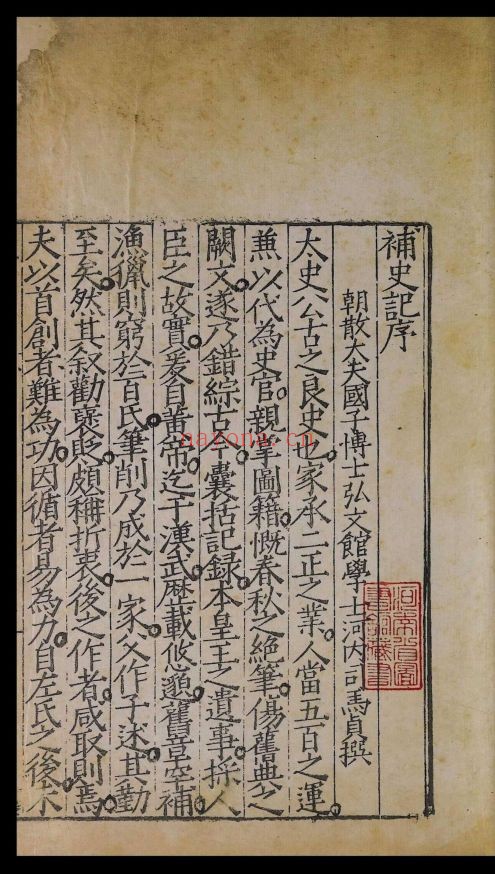 補史記序
朝散大夫國子博士弘文館學士河內司馬貞撰
太史公古之良史也家承二正之業人當五百之運
兼以代為史官親掌圖籍慨春秋之絕筆傷舊典之
闕文遂乃錯綜古今囊括記錄本皇王之遺事採人
臣之故實爰自黃帝迄于漢武歷載悠邈舊章罕補
漁獵則窮於百氏筆削乃成於一家父作子述其勤
至矣然其叙勸褒貶頗稱折衷後之作者咸取則焉
夫以首創者難為功因循者易為力自左氏之後未
河南省圖書館藏書